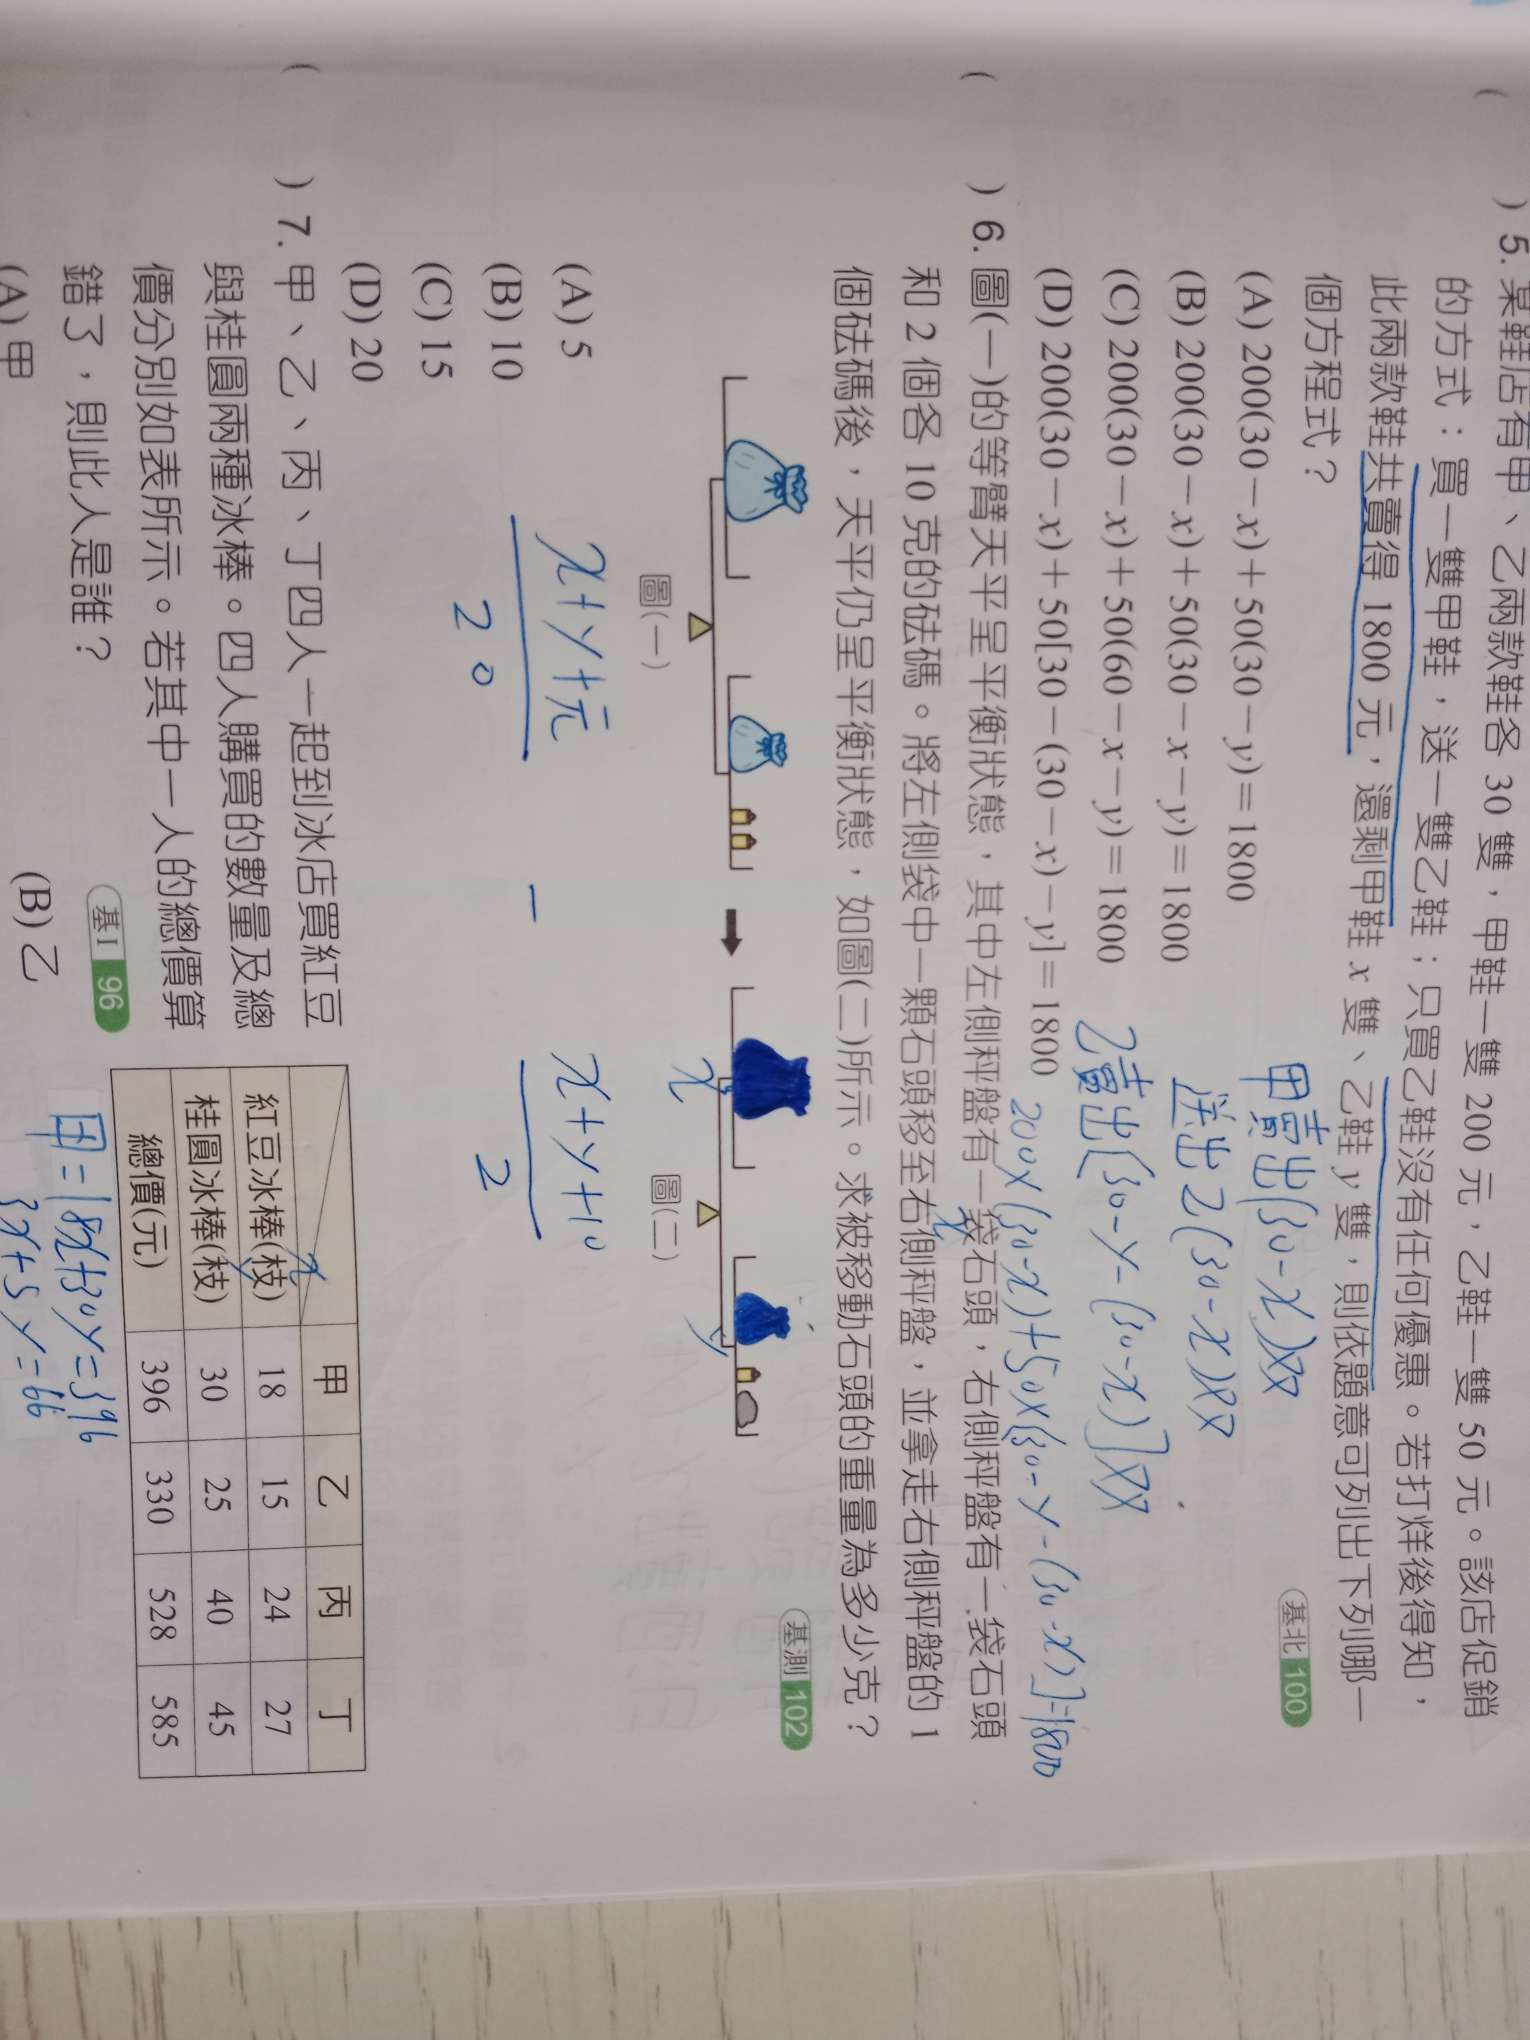 ( ) 5. 某鞋店有甲、乙兩款鞋各 30 雙，甲鞋一雙 200 元，乙鞋一雙 50 元。該店促銷
的方式：買一雙甲鞋，送一雙乙鞋；只買乙鞋沒有任何優惠。若打烊後得知，
此兩款鞋共賣得 1800 元，還剩甲鞋 x 雙、乙鞋 y 雙，則依題意可列出下列哪一
個方程式？
基北 100
(A) 200(30－x)＋50(30－y)＝1800
(B) 200(30－x)＋50(30－x－y)＝1800
(C) 200(30－x)＋50(60－x－y)＝1800
(D) 200(30－x)＋50[30－(30－x)－y]＝1800
甲賣出(30-x)雙
送出乙(30-x)雙
乙賣出[30-y-(30-x)]雙
200×(30-x)+50×[30-y-(30-x)]=1800
( ) 6. 圖(一)的等臂天平呈平衡狀態，其中左側秤盤有一袋石頭，右側秤盤有一袋石頭
和 2 個各 10 克的砝碼。將左側袋中一顆石頭移至右側秤盤，並拿走右側秤盤的 1
個砝碼後，天平仍呈平衡狀態，如圖(二)所示。求被移動石頭的重量為多少克？
基測 102
x
y
圖(一)
圖(二)
(A) 5
(B) 10
(C) 15
(D) 20
x+y+元
20
-
x+y+10
2
( ) 7. 甲、乙、丙、丁四人一起到冰店買紅豆
與桂圓兩種冰棒。四人購買的數量及總
價分別如表所示。若其中一人的總價算
錯了，則此人是誰？
基I 96
甲 乙 丙 丁
紅豆冰棒(枝) 18 15 24 27
桂圓冰棒(枝) 30 25 40 45
總價(元) 396 330 528 585
x
y
甲=18x+30y=396
3x+5y=66
(A) 甲 (B) 乙